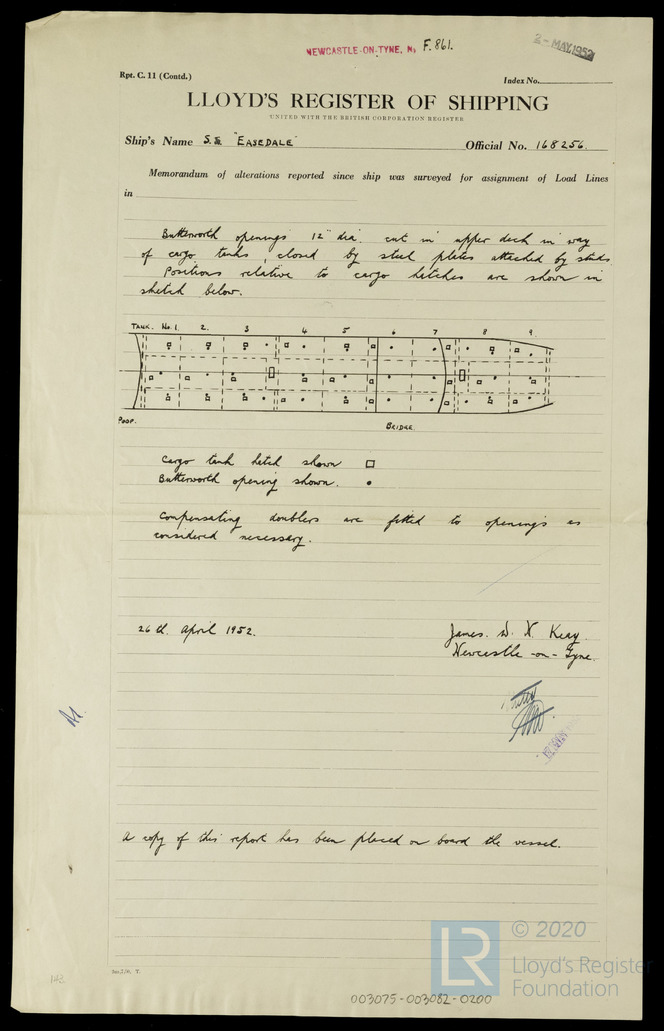 NEWCASTLE-ON-TYNE, No F.861.
2 - MAY 1952
Rpt. C. 11 (Contd.)
Index No.
LLOYD'S REGISTER OF SHIPPING
UNITED WITH THE BRITISH CORPORATION REGISTER
Ship's Name S.S. "EASEDALE"
Official No. 168256.
Memorandum of alterations reported since ship was surveyed for assignment of Load Lines
in
Butterworth openings 12" dia. cut in upper deck in way
of cargo tanks, closed by steel plates attached by studs
Positions relative to cargo hatches are shown in
sketch below.
TANK. No 1. 2. 3 4 5. 6 7 8 9.
POOP.
BRIDGE.
Cargo tank hatch shown
Butterworth opening shown.
Compensating doublers are fitted to openings as
considered necessary.
26th. April 1952.
James. D. N. Keay.
Newcastle-on-Tyne.
A copy of this report has been placed on board the vessel.
© 2020
LR
Lloyd's Register
Foundation
003075-003082-0200